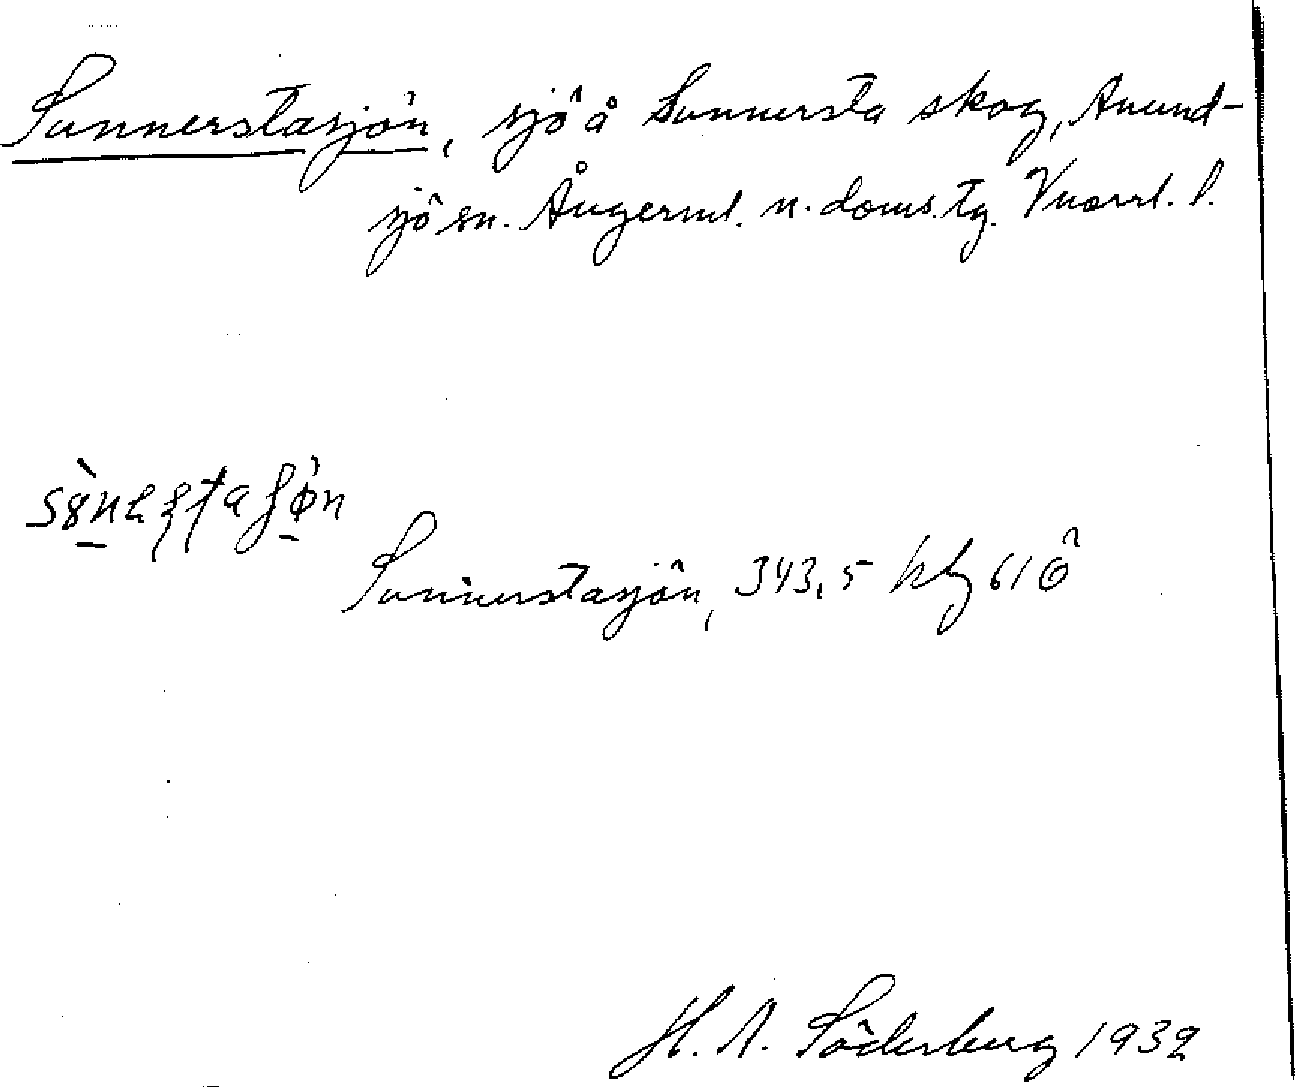 Sunnerstasjön, sjö å Sunnersta skog, Anund-
sjö sn. Ångerml. n. doms. tg. Vnorrl. l.
Sunnerstasjön, 343,5 kbl 61 ö
H. A. Söderberg 1932